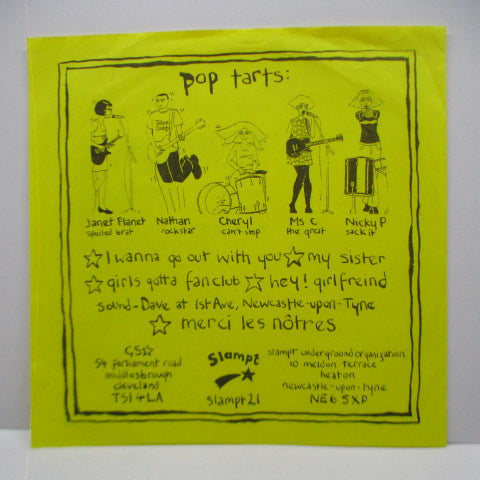 pop tarts:
Janet Planet Nathan Cheryl Ms C Nicky P
spoiled brat rockstar can't stop the great sack it
☆ I wanna go out with you ☆ my sister
☆ girls gotta fanclub ☆ hey! girlfreind
sound - Dave at 1st Ave, Newcastle-upon-Tyne
☆ merci les nôtres
GS☆
54 parliament road
middlesbrough
cleveland
TS1 4LA
Slampt
Slampt 21
slampt underground organization
10 meldon terrace
heaton
newcastle-upon-tyne
NE6 5XP